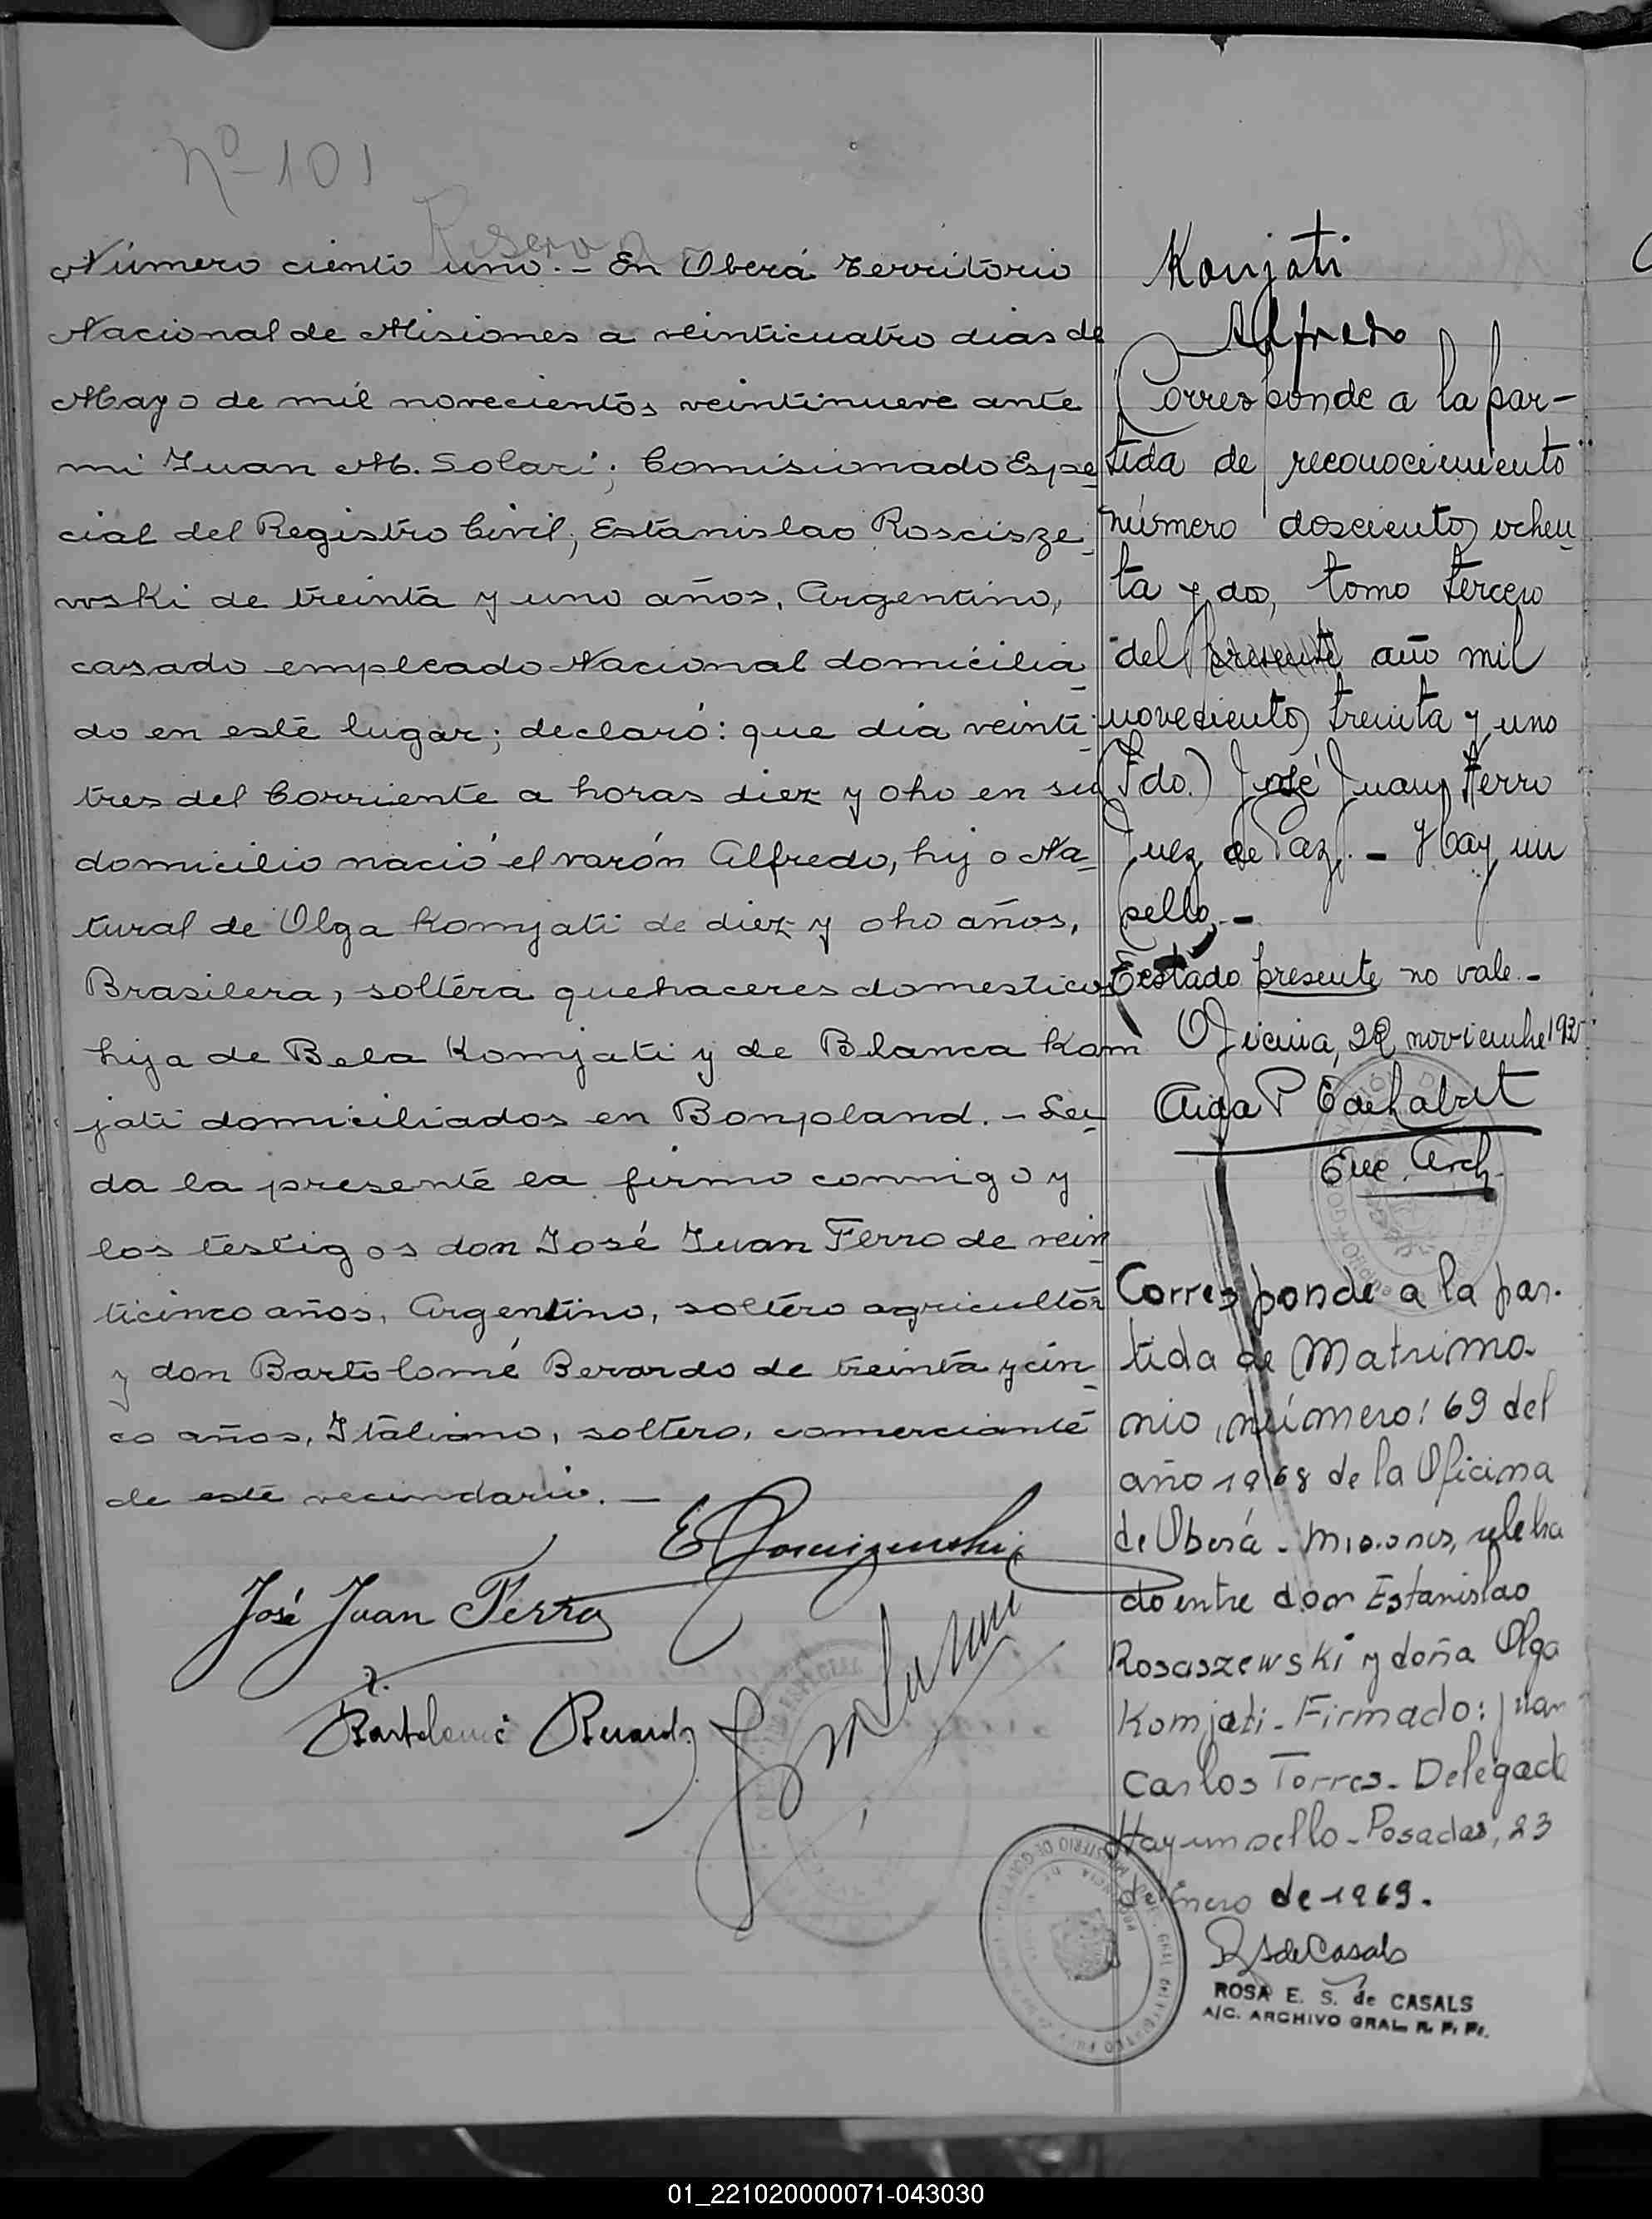 Nº 101
Reserva
Número ciento uno. - En Oberá Territorio
Nacional de Misiones a veinticuatro dias de
Mayo de mil novecientos veintinueve ante
mi Juan M. Solari; Comisionado Espe-
cial del Registro Civil, Estanislao Roscisze-
wski de treinta y uno años, Argentino,
casado empleado Nacional domicilia-
do en este lugar; declaró: que dia veinti-
tres del Corriente a horas diez y oho en su
domicilio nació el varón Alfredo, hijo Na-
tural de Olga Komjati de diez y oho años,
Brasilera, soltera quehaceres domesticos
hija de Bela Komjati y de Blanca Kom
jati domiciliados en Bonpland. - Lei-
da la presente la firmo conmigo y
los testigos don José Juan Ferro de vein
ticinco años, Argentino, soltero agricultor
y don Bartolomé Berardo de treinta y cin-
co años, Italiano, soltero, comerciante
de este vecindario. —
José Juan Ferro
Bartolomé Berardo
Konjati
Alfredo
Corresponde a la par-
tida de reconocimiento
número doscientos ochen-
ta y dos, tomo tercero
del presente año mil
novecientos treinta y uno
(Fdo.) José Juan Ferro
Juez de Paz. - Hay un
sello. -
Testado presente no vale. -
Oficina, noviembre
Enc. Arch.
Corresponde a la par-
tida de Matrimo-
nio, número: 69 del
año 1968 de la Oficina
de Oberá - Misiones, celebra
do entre don Estanislao
Rosaszewski y doña Olga
Komjati - Firmado: Juan
Carlos Torres - Delegado
Hay un sello - Posadas, 23
de Enero de 1969.
RSdeCasals
ROSA E. S. de CASALS
A/C. ARCHIVO GRAL. R. P. P.
01_221020000071-043030